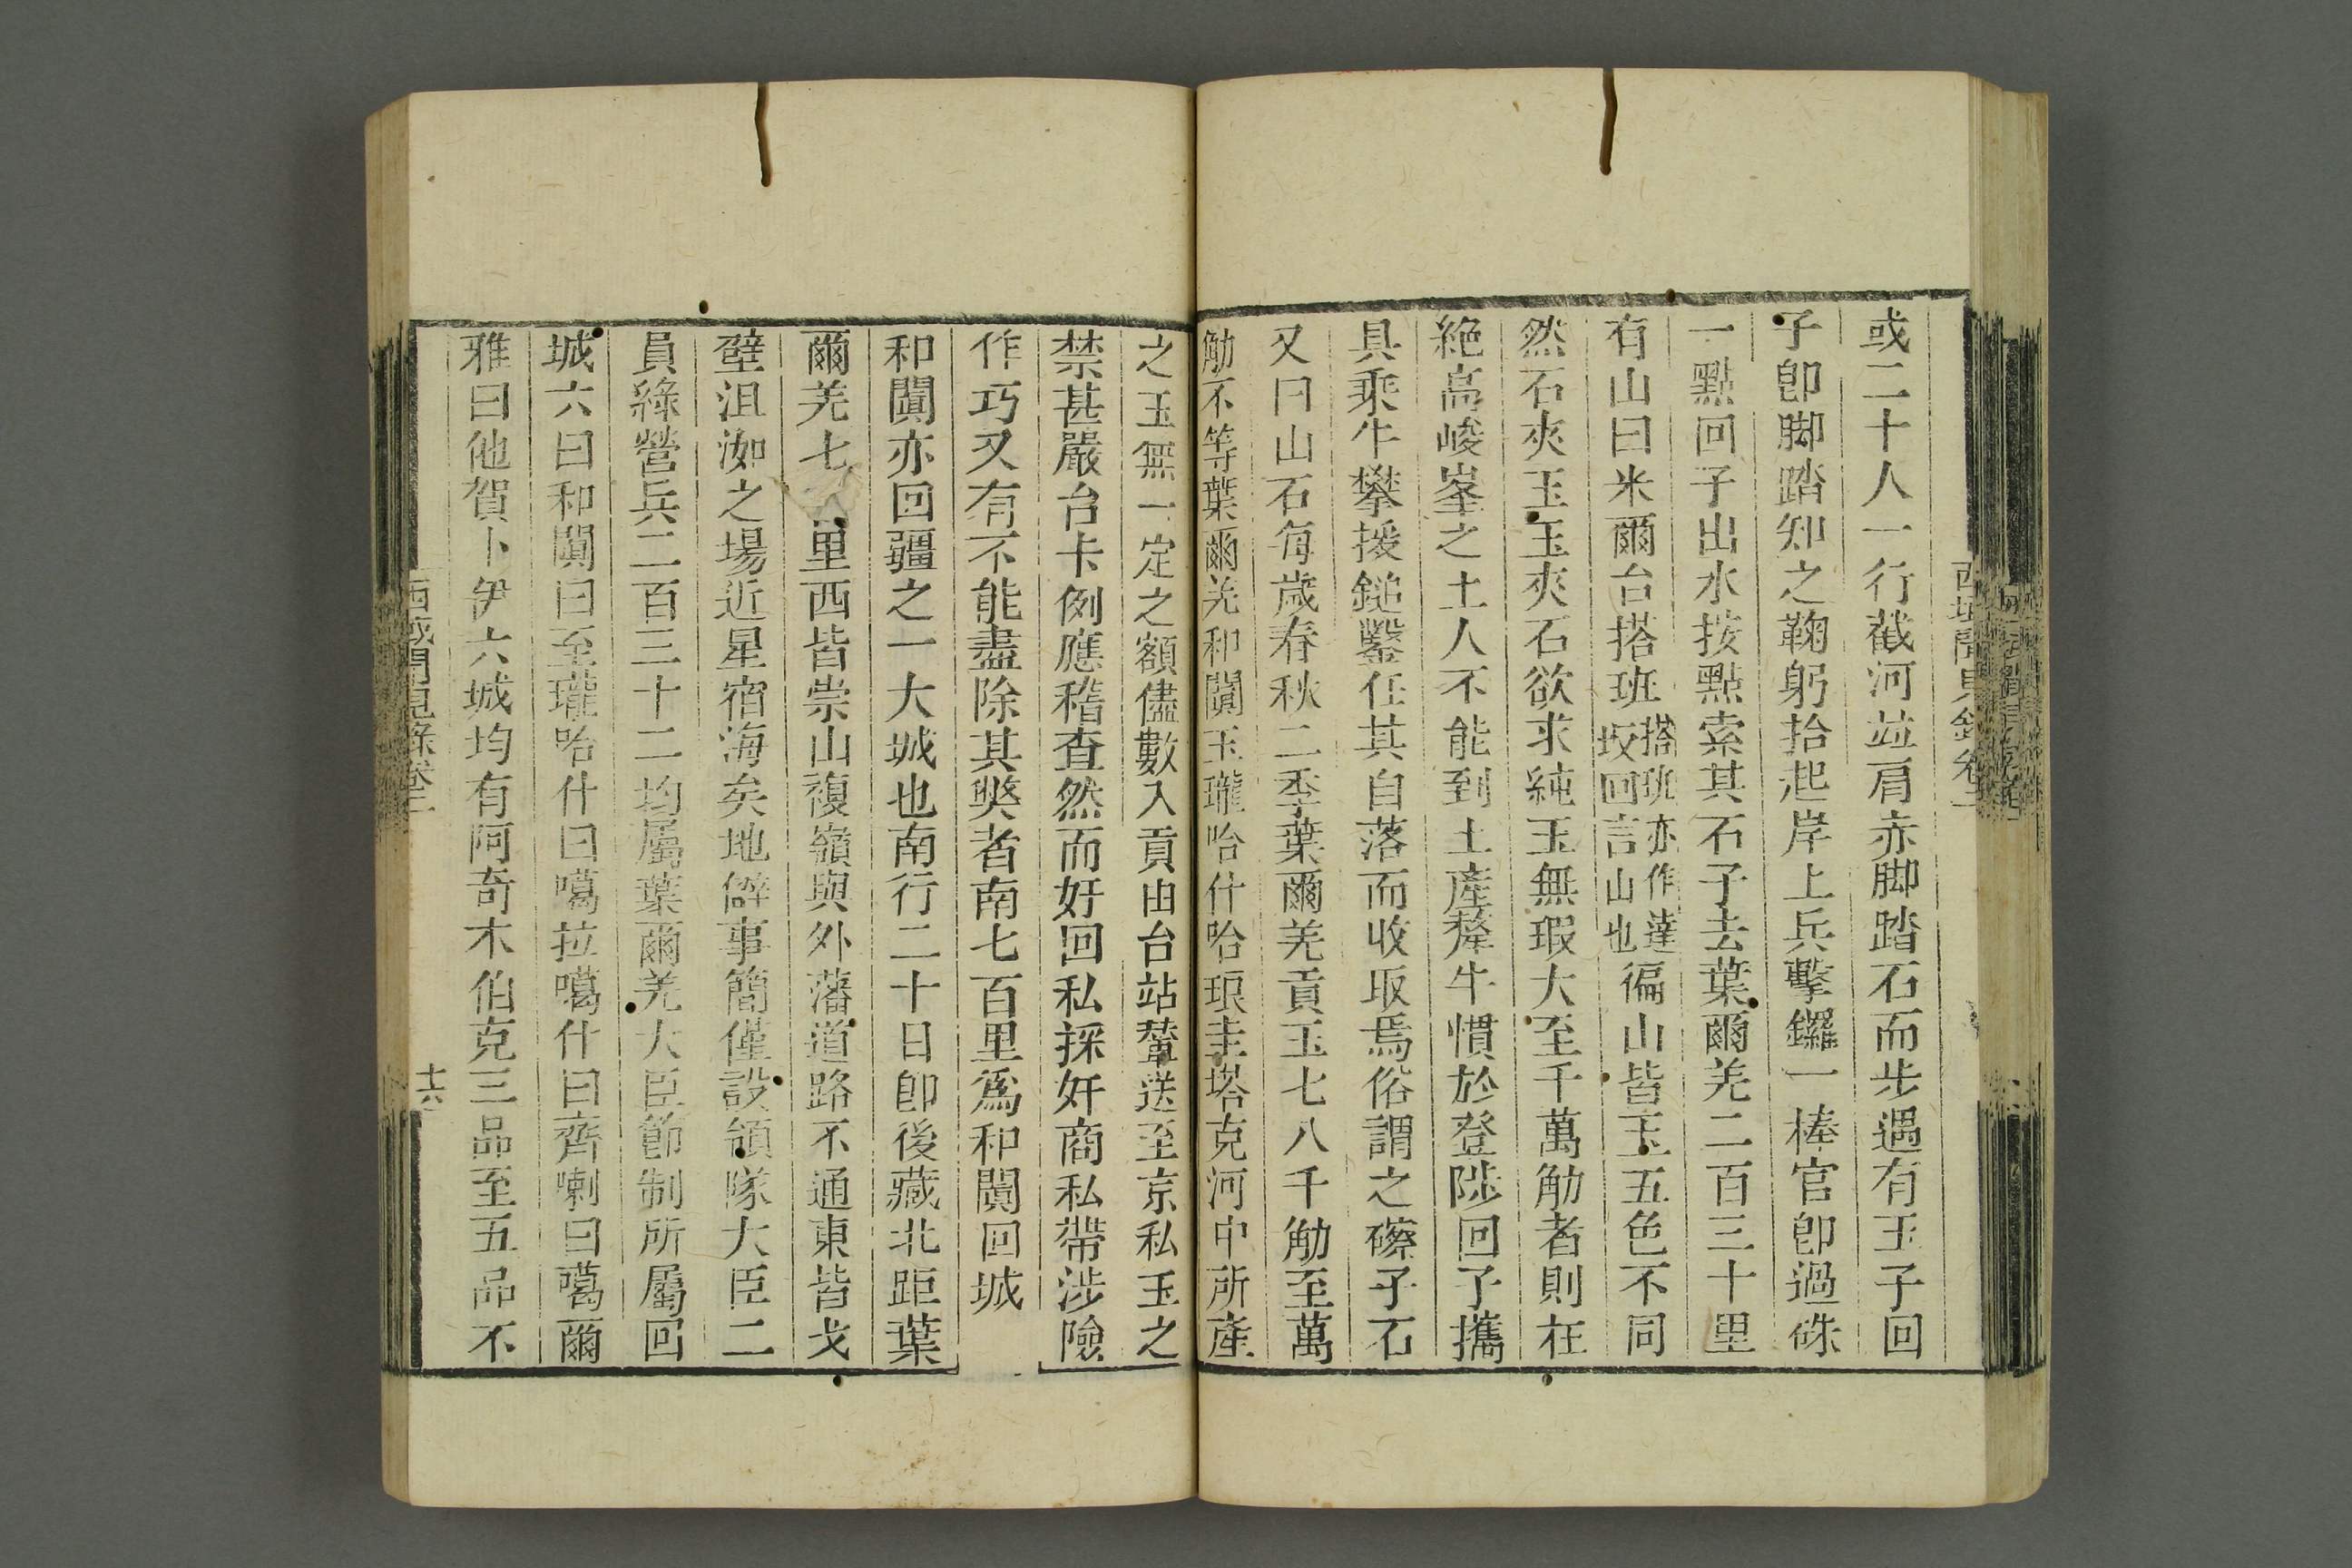 或二十人一行截河並肩赤脚踏石而步遇有玉子回
子卽脚踏知之鞠躬拾起岸上兵擊鑼一棒官卽過硃
一點回子出水按點索其石子去葉爾羌二百三十里
有山曰米爾台搭班搭班亦作達坂回言山也徧山皆玉五色不同
然石夾玉玉夾石欲求純玉無瑕大至千萬觔者則在
絶高峻峯之土人不能到土產犛牛慣於登陟回子攜
具乘牛攀援鎚鑿任其自落而收取焉俗謂之礤子石
又曰山石每歲春秋二季葉爾羌貢玉七八千觔至萬
觔不等葉爾羌和闐玉瓏哈什哈琅圭塔克河中所產
之玉無一定之額儘數入貢由台站輦送至京私玉之
禁甚嚴台卡例應稽查然而奸回私採奸商私帶涉險
作巧又有不能盡除其獘者南七百里爲和闐回城
和闐亦回疆之一大城也南行二十日卽後藏北距葉
爾羌七里西皆崇山複嶺與外藩道路不通東皆戈
壁沮洳之場近星宿海矣地僻事簡僅設領隊大臣二
員綠營兵二百三十二均屬葉爾羌大臣節制所屬回
城六曰和闐曰至瓏哈什曰噶拉噶什曰齊喇曰噶爾
雅曰他賀卜伊六城均有阿奇木伯克三品至五品不
西域聞見錄卷二
十六